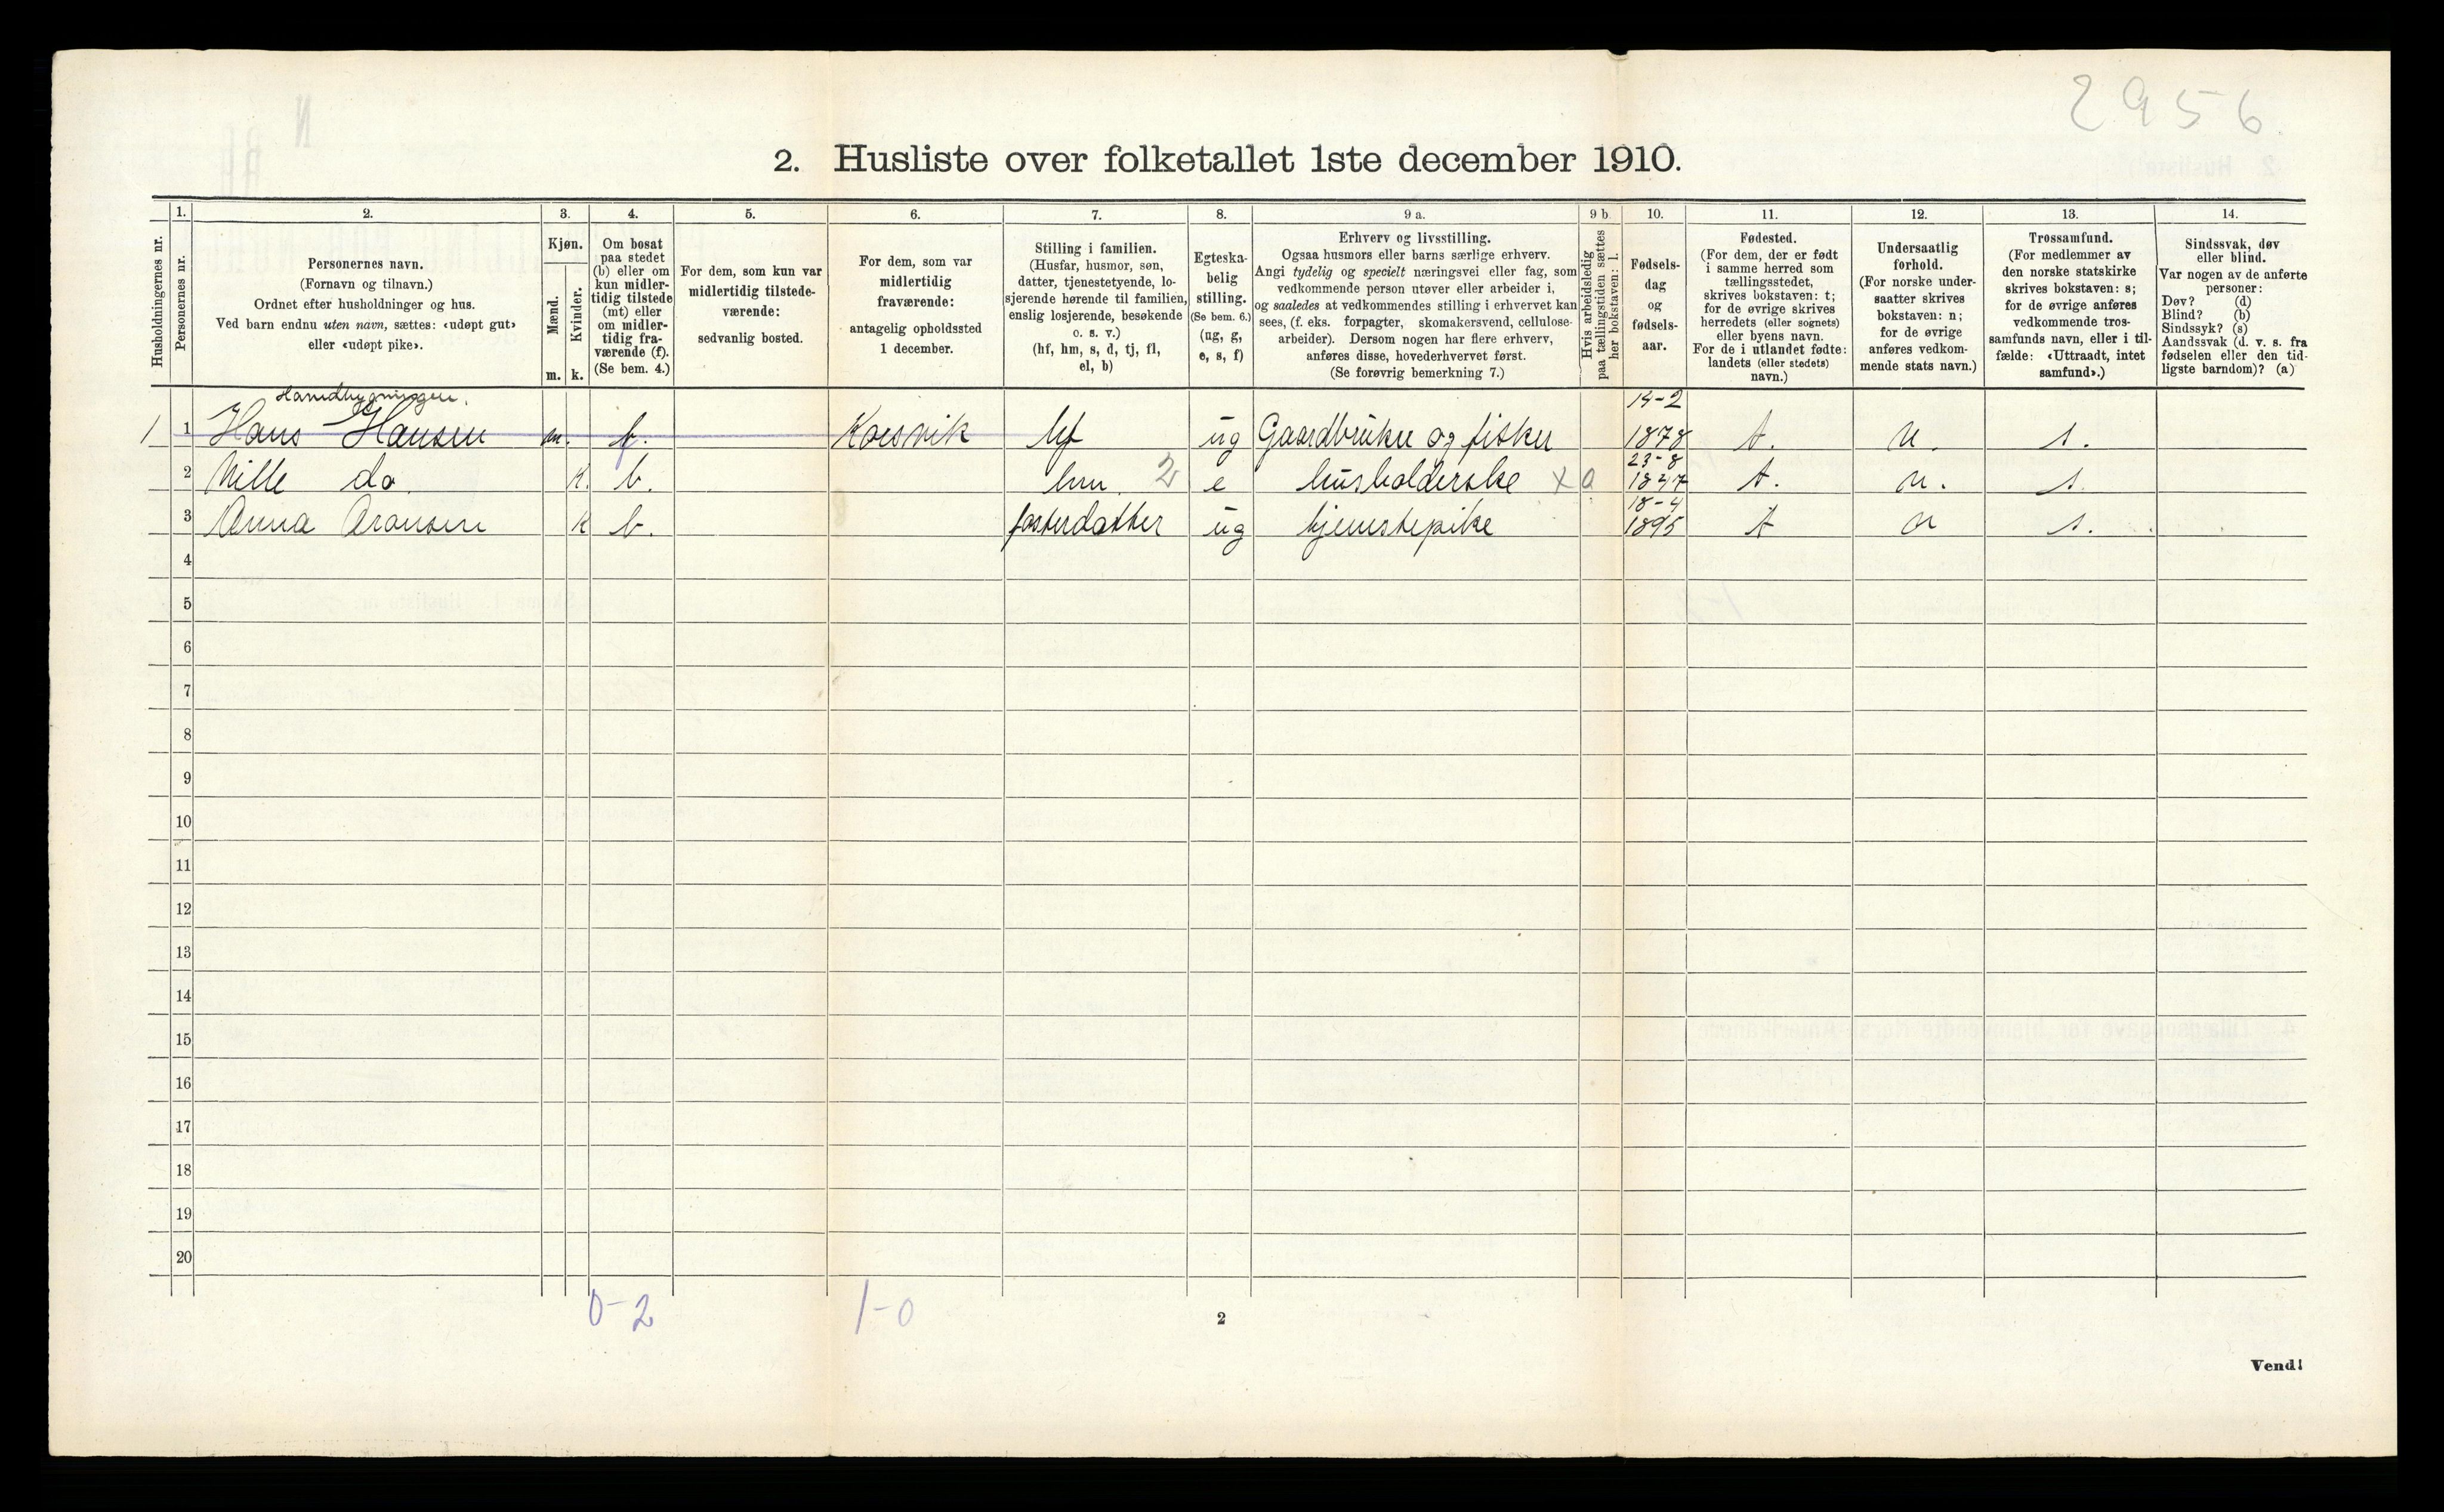 2956.
2. Husliste over folketallet 1ste december 1910.
1. 2. 3. 4. 5. 6. 7. 8. 9 a. 9 b. 10. 11. 12. 13. 14.
Husholdningernes nr.
Personernes nr.
Personernes navn.
(Fornavn og tilnavn.)
Ordnet efter husholdninger og hus.
Ved barn endnu uten navn, sættes: «udøpt gut»
eller «udøpt pike».
Kjøn.
Mænd.
Kvinder.
m. k.
Om bosat
paa stedet
(b) eller om
kun midler-
tidig tilstede
(mt) eller
om midler-
tidig fra-
værende (f).
(Se bem. 4.)
For dem, som kun var
midlertidig tilstede-
værende:
sedvanlig bosted.
For dem, som var
midlertidig
fraværende:
antagelig opholdssted
1 december.
Stilling i familien.
(Husfar, husmor, søn,
datter, tjenestetyende, lo-
sjerende hørende til familien,
enslig losjerende, besøkende
o. s. v.)
(hf, hm, s, d, tj, fl,
el, b)
Egteska-
belig
stilling.
(Se bem. 6.)
(ug, g,
e, s, f)
Erhverv og livsstilling.
Ogsaa husmors eller barns særlige erhverv.
Angi tydelig og specielt næringsvei eller fag, som
vedkommende person utøver eller arbeider i,
og saaledes at vedkommendes stilling i erhvervet kan
sees, (f. eks. forpagter, skomakersvend, cellulose-
arbeider). Dersom nogen har flere erhverv,
anføres disse, hovederhvervet først.
(Se forøvrig bemerkning 7.)
Hvis arbeidsledig
paa tællingstiden sættes
her bokstaven: l.
Fødsels-
dag
og
fødsels-
aar.
Fødested.
(For dem, der er født
i samme herred som
tællingsstedet,
skrives bokstaven: t;
for de øvrige skrives
herredets (eller sognets)
eller byens navn.
For de i utlandet fødte:
landets (eller stedets)
navn.)
Undersaatlig
forhold.
(For norske under-
saatter skrives
bokstaven: n;
for de øvrige
anføres vedkom-
mende stats navn.)
Trossamfund.
(For medlemmer av
den norske statskirke
skrives bokstaven: s;
for de øvrige anføres
vedkommende tros-
samfunds navn, eller i til-
fælde: «Uttraadt, intet
samfund».)
Sindssvak, døv
eller blind.
Var nogen av de anførte
personer:
Døv? (d)
Blind? (b)
Sindssyk? (s)
Aandssvak (d. v. s. fra
fødselen eller den tid-
ligste barndom)? (a)
14-2
1 1 Hans Hansen m. f. Korsvik hf ug Gaardbruker og fisker 1878 t. n. s.
23-8
2 Nille do. K. b. hm. 2 e husholderske x 0 1847 t. n. s.
18-4
3 Anna Aronsen K b. fosterdatter ug tjenestepike 1895 t n s.
4
5
6
7
8
9
10
11
12
13
14
15
16
17
18
19
20
0-2 1-0
2
Vend!